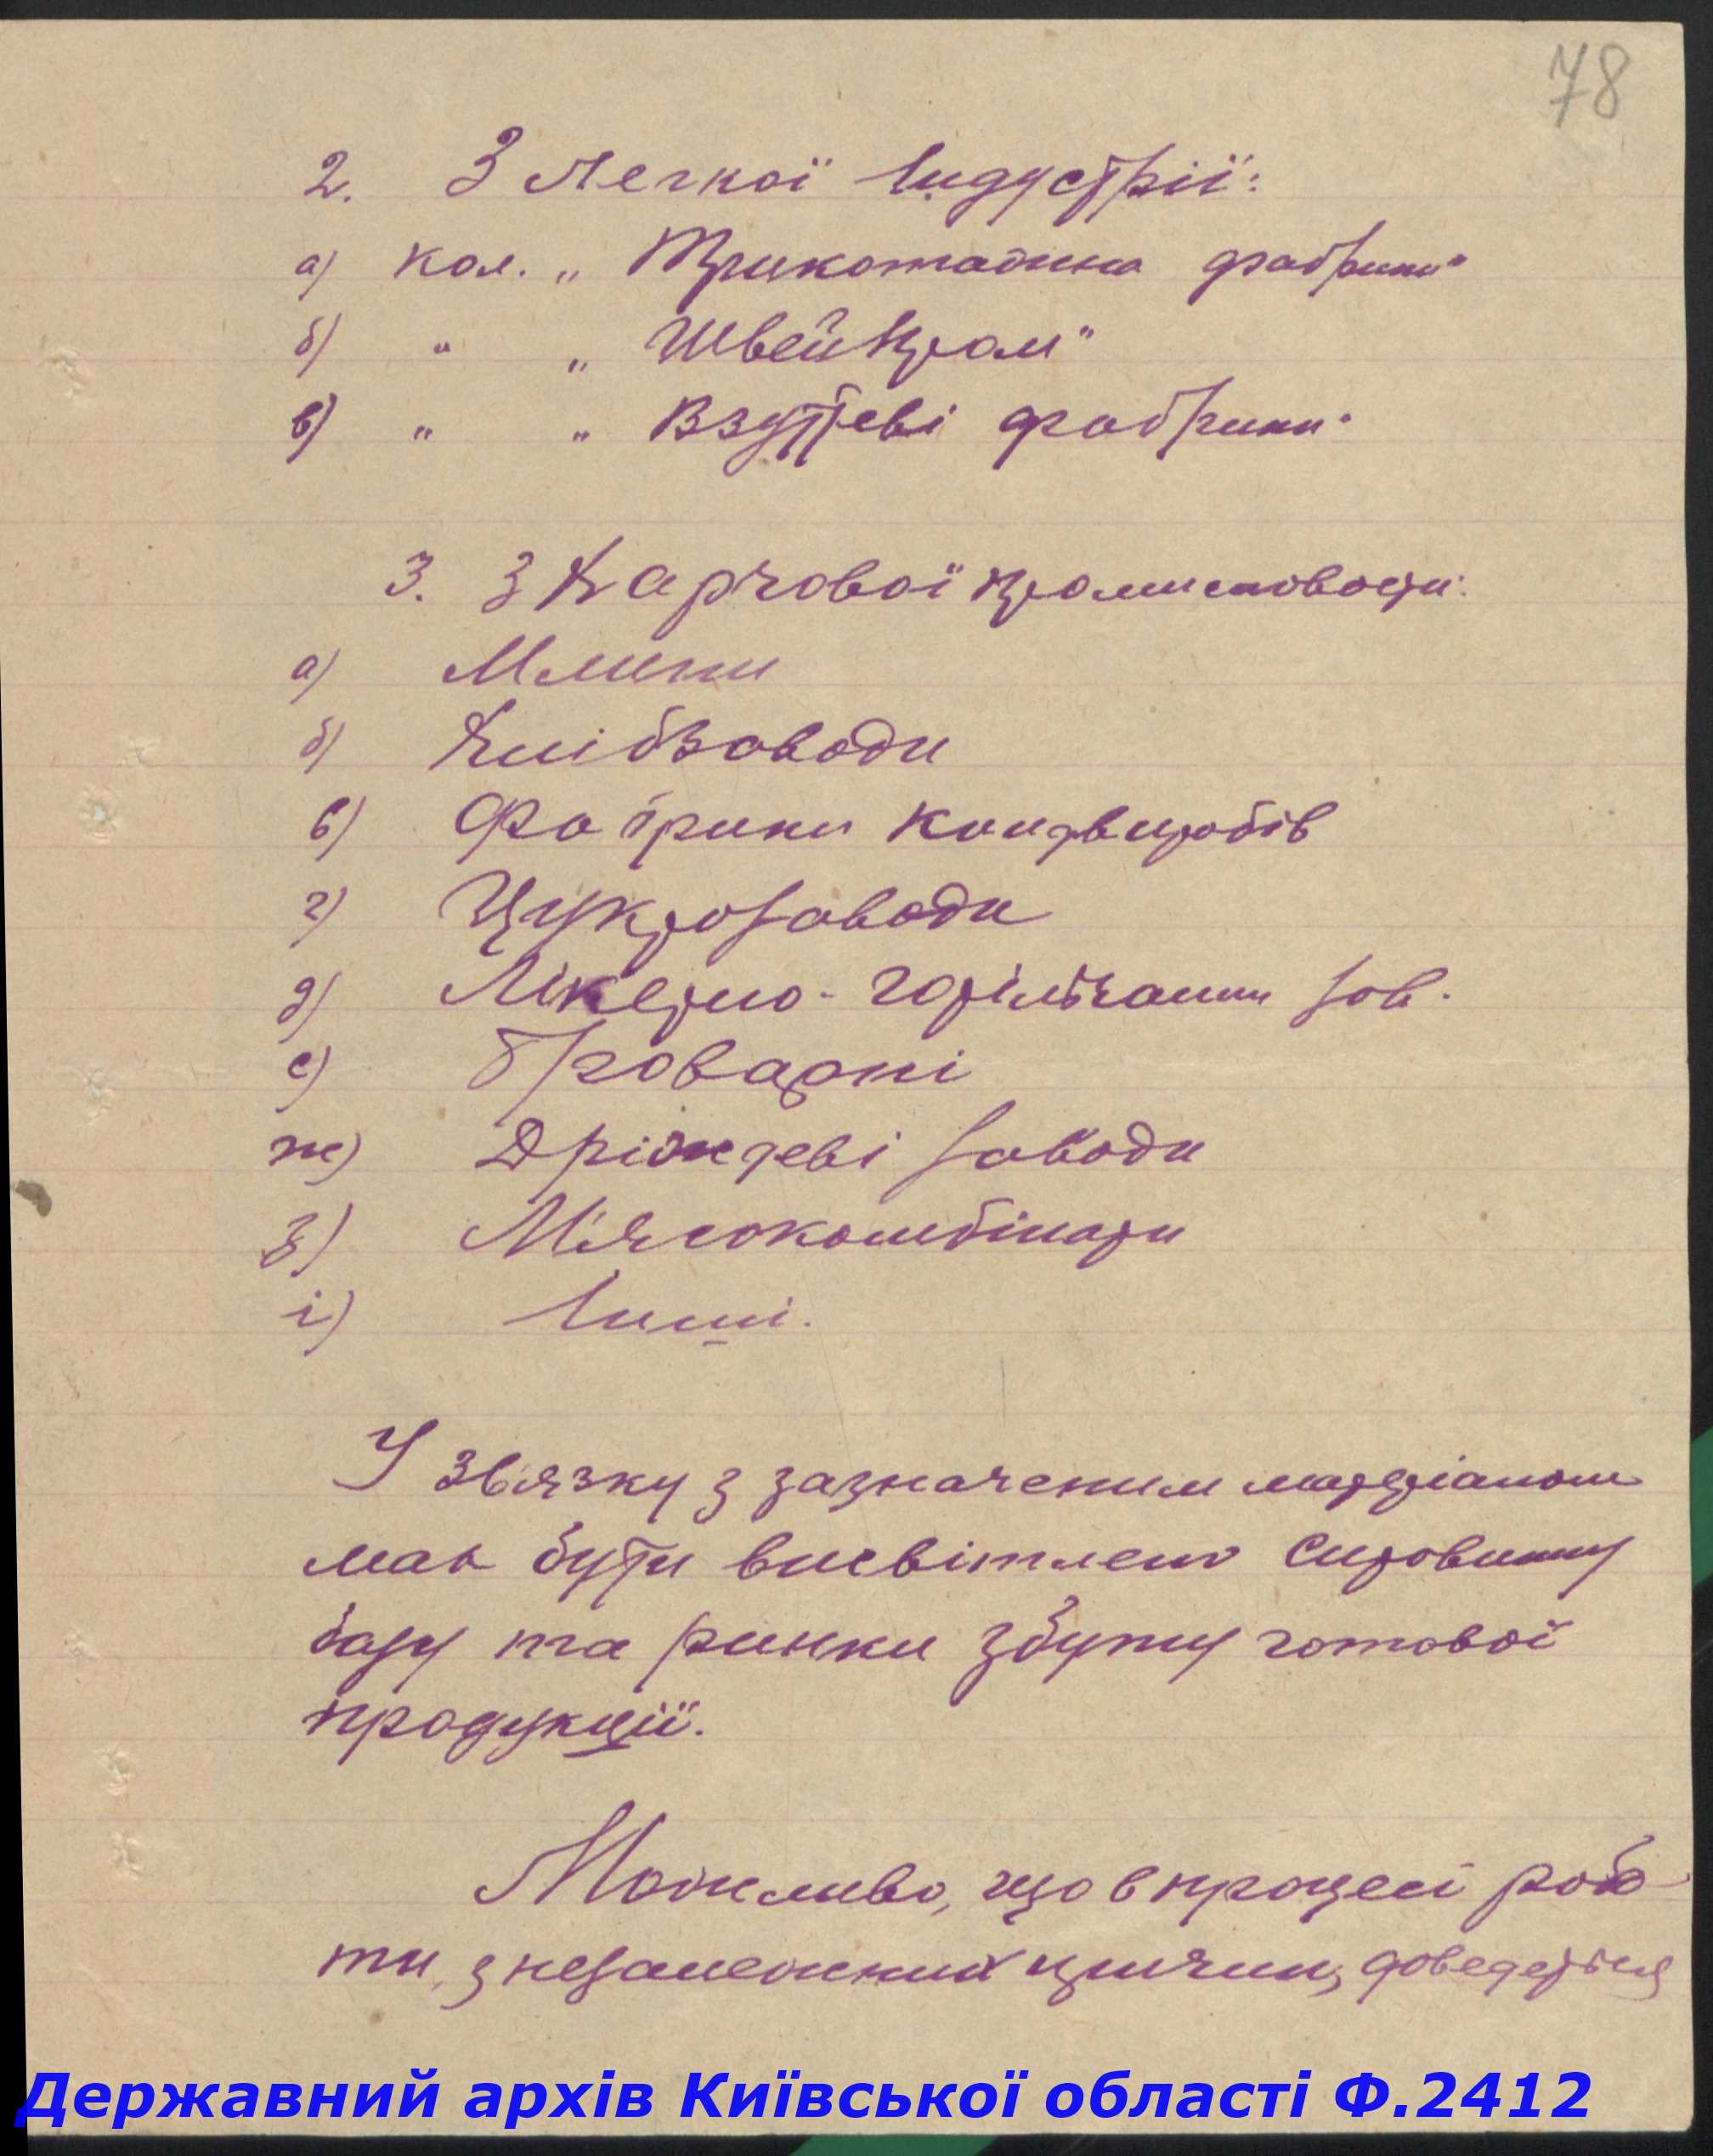 78
2. З Легкої Індустрії:
а) кол. „Трикотажна фабрика"
б) " „Швейпром"
в) " „Взуттєві фабрики"
3. З Харчової промисловости:
а) Млини
б) Хлібзаводи
в) Фабрики кондвиробів
г) Цукрозаводи
д) Лікерно-горілчаний зав.
е) Броварні
ж) Дріжджеві заводи
з) М'ясокомбінати
і) Інші.
У зв'язку з зазначеним матеріалом
має бути висвітлено сировинну
базу та ринки збуту готової
продукції.
Можливо, що в процесі робо-
ти, з незалежних причин, доведеться
Державний архів Київської області Ф.2412